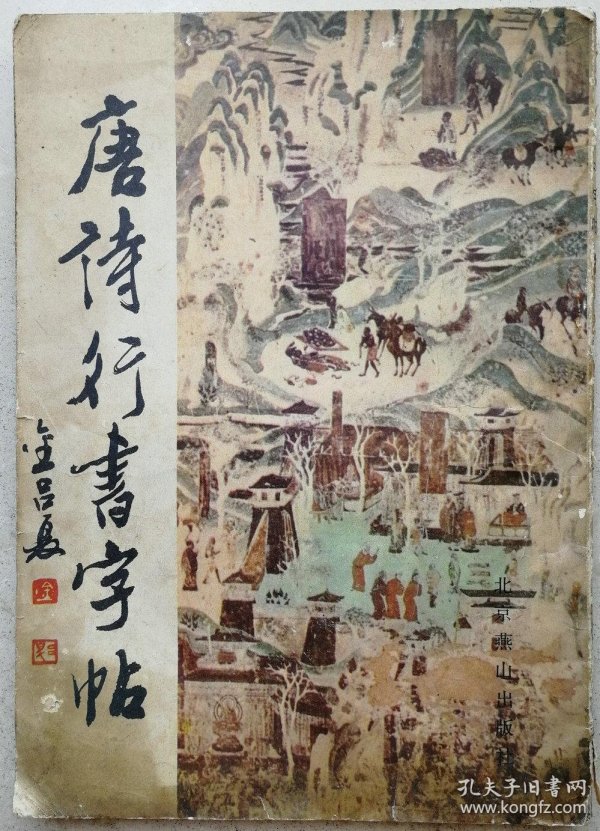 唐詩行書字帖
金吕夏
金
北京燕山出版社
孔夫子旧书网
www.kongfz.com